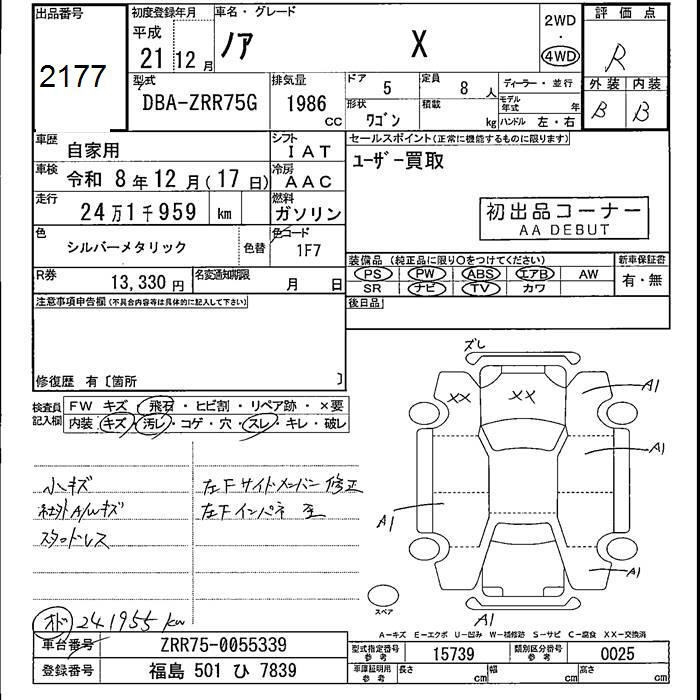 出品番号
2177
初度登録年月
平成
21 12 月
車名・グレード
ノア X
2WD
・
4WD
評価点
R
外装 内装
B B
型式
DBA-ZRR75G
排気量
1986 cc
ドア
5
定員
8 人
形状
ワゴン
積載
kg
ディーラー・並行
モデル年式 年
ハンドル 左・右
車歴
自家用
シフト
IAT
車検
令和 8 年 12 月 ( 17 日)
冷房
AAC
走行
24 万 1 千 959 km
燃料
ガソリン
色
シルバーメタリック
色替
色コード
1F7
R券
13,330 円
名変通知期限
月 日
セールスポイント(正常に機能するものに限ります)
ユーザー買取
初出品コーナー
AA DEBUT
装備品 (純正品に限り○をつけてください)
PS PW ABS エアB AW
SR ナビ TV カワ
新車保証書
有・無
後日品
注意事項申告欄 (不具合内容等は具体的に記入して下さい)
修復歴 有〔箇所 〕
検査員
記入欄
FW キズ・飛石・ヒビ割・リペア跡・×要
内装 キズ・汚レ・コゲ・穴・スレ・キレ・破レ
小キズ
社外A/Wキズ
スタッドレス
左Fサイドメンバー修正
左Fインパネ 歪
オド 241955 km
ズレ
XX
XX
A1
A1
A1
A1
A1
スペア
A-キズ E-エクボ U-凹み W-補修跡 S-サビ C-腐食 XX-交換済
車台番号
ZRR75-0055339
登録番号
福島 501 ひ 7839
型式指定番号
参考
15739
類別区分番号
参考
0025
車庫証明用
参考
長さ cm
幅 cm
高さ cm